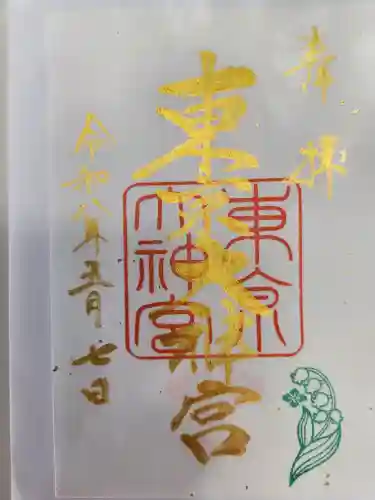 奉拝
東京大神宮
東京大神宮
令和八年五月七日